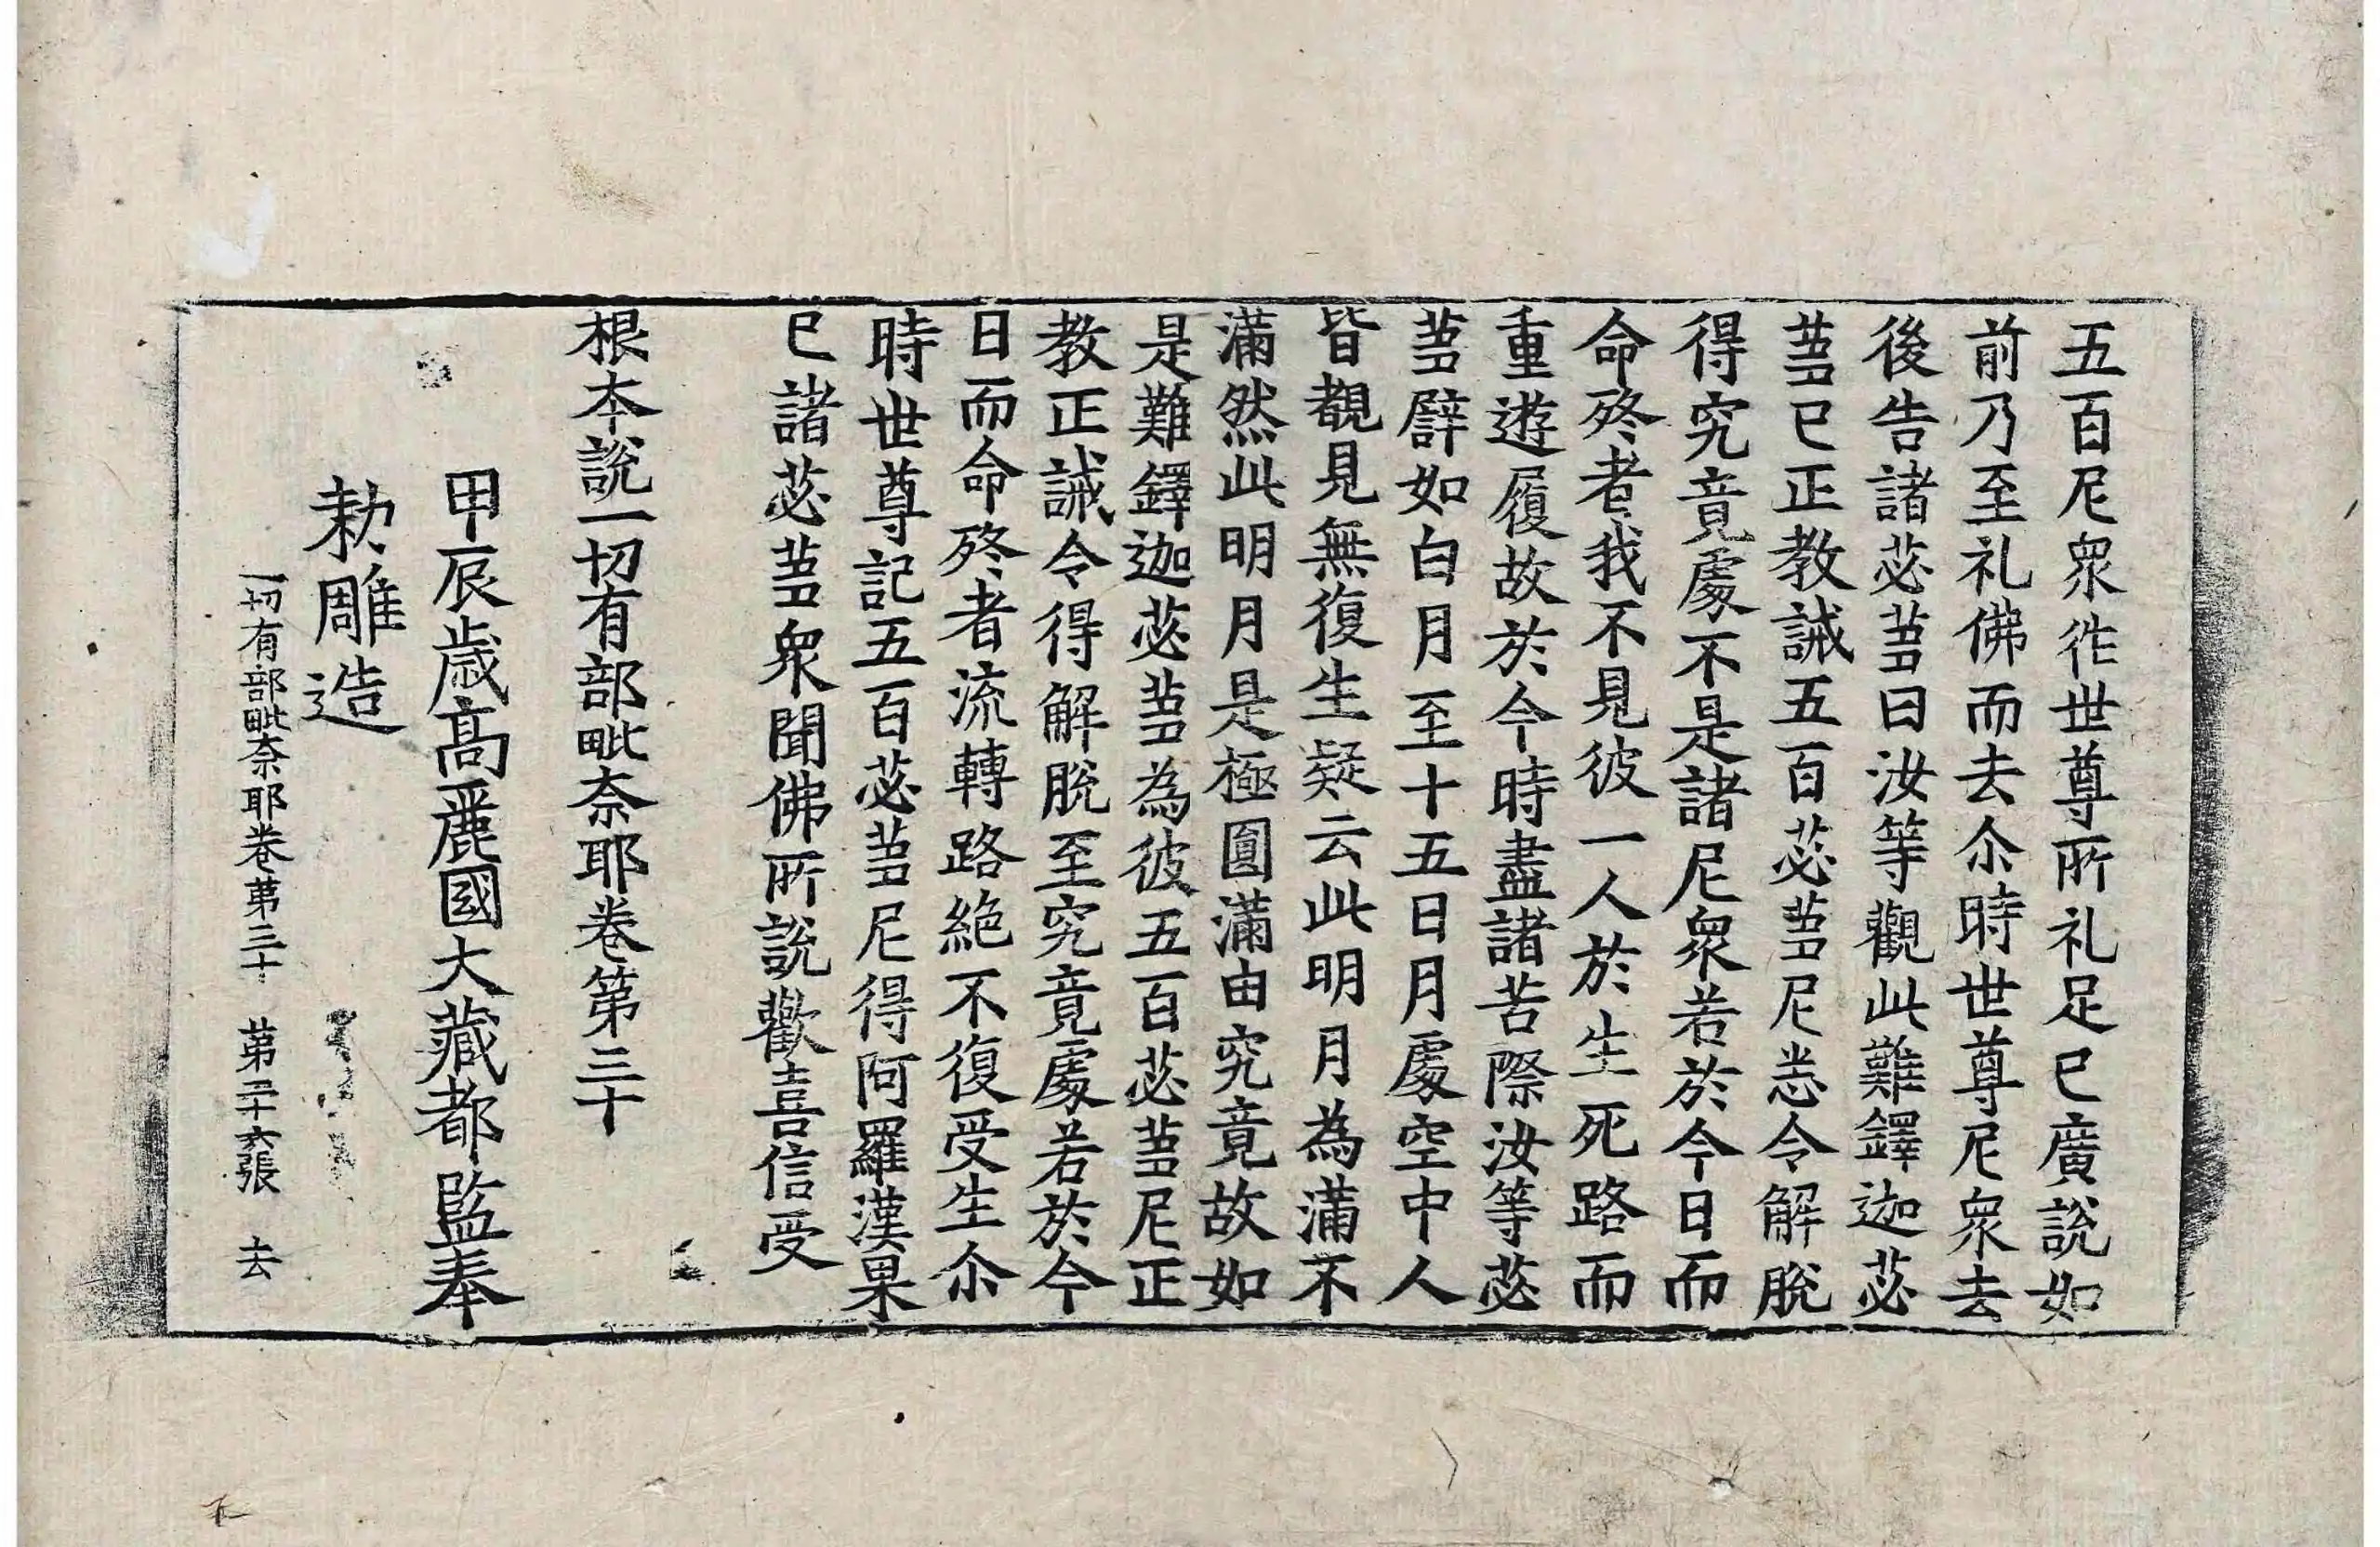 五百尼衆徃世尊所礼足已廣説如
前乃至礼佛而去尒時世尊尼衆去
後告諸苾芻曰汝等觀此難鐸迦苾
芻已正教誡五百苾芻尼悉令解脫
得究竟處不是諸尼衆若於今日而
命終者我不見彼一人於生死路而
重遊履故於今時盡諸苦際汝等苾
芻譬如白月至十五日月處空中人
皆覩見無復生疑云此明月為滿不
滿然此明月是極圓滿由究竟故如
是難鐸迦苾芻為彼五百苾芻尼正
教正誡令得解脫至究竟處若於今
日而命終者流轉路絶不復受生尒
時世尊記五百苾芻尼得阿羅漢果
已諸苾芻衆聞佛所說歡喜信受
根本說一切有部毗奈耶卷第三十
甲辰歲高麗國大藏都監奉
勅雕造
一切有部毗奈耶卷第三十 第二十六張 去